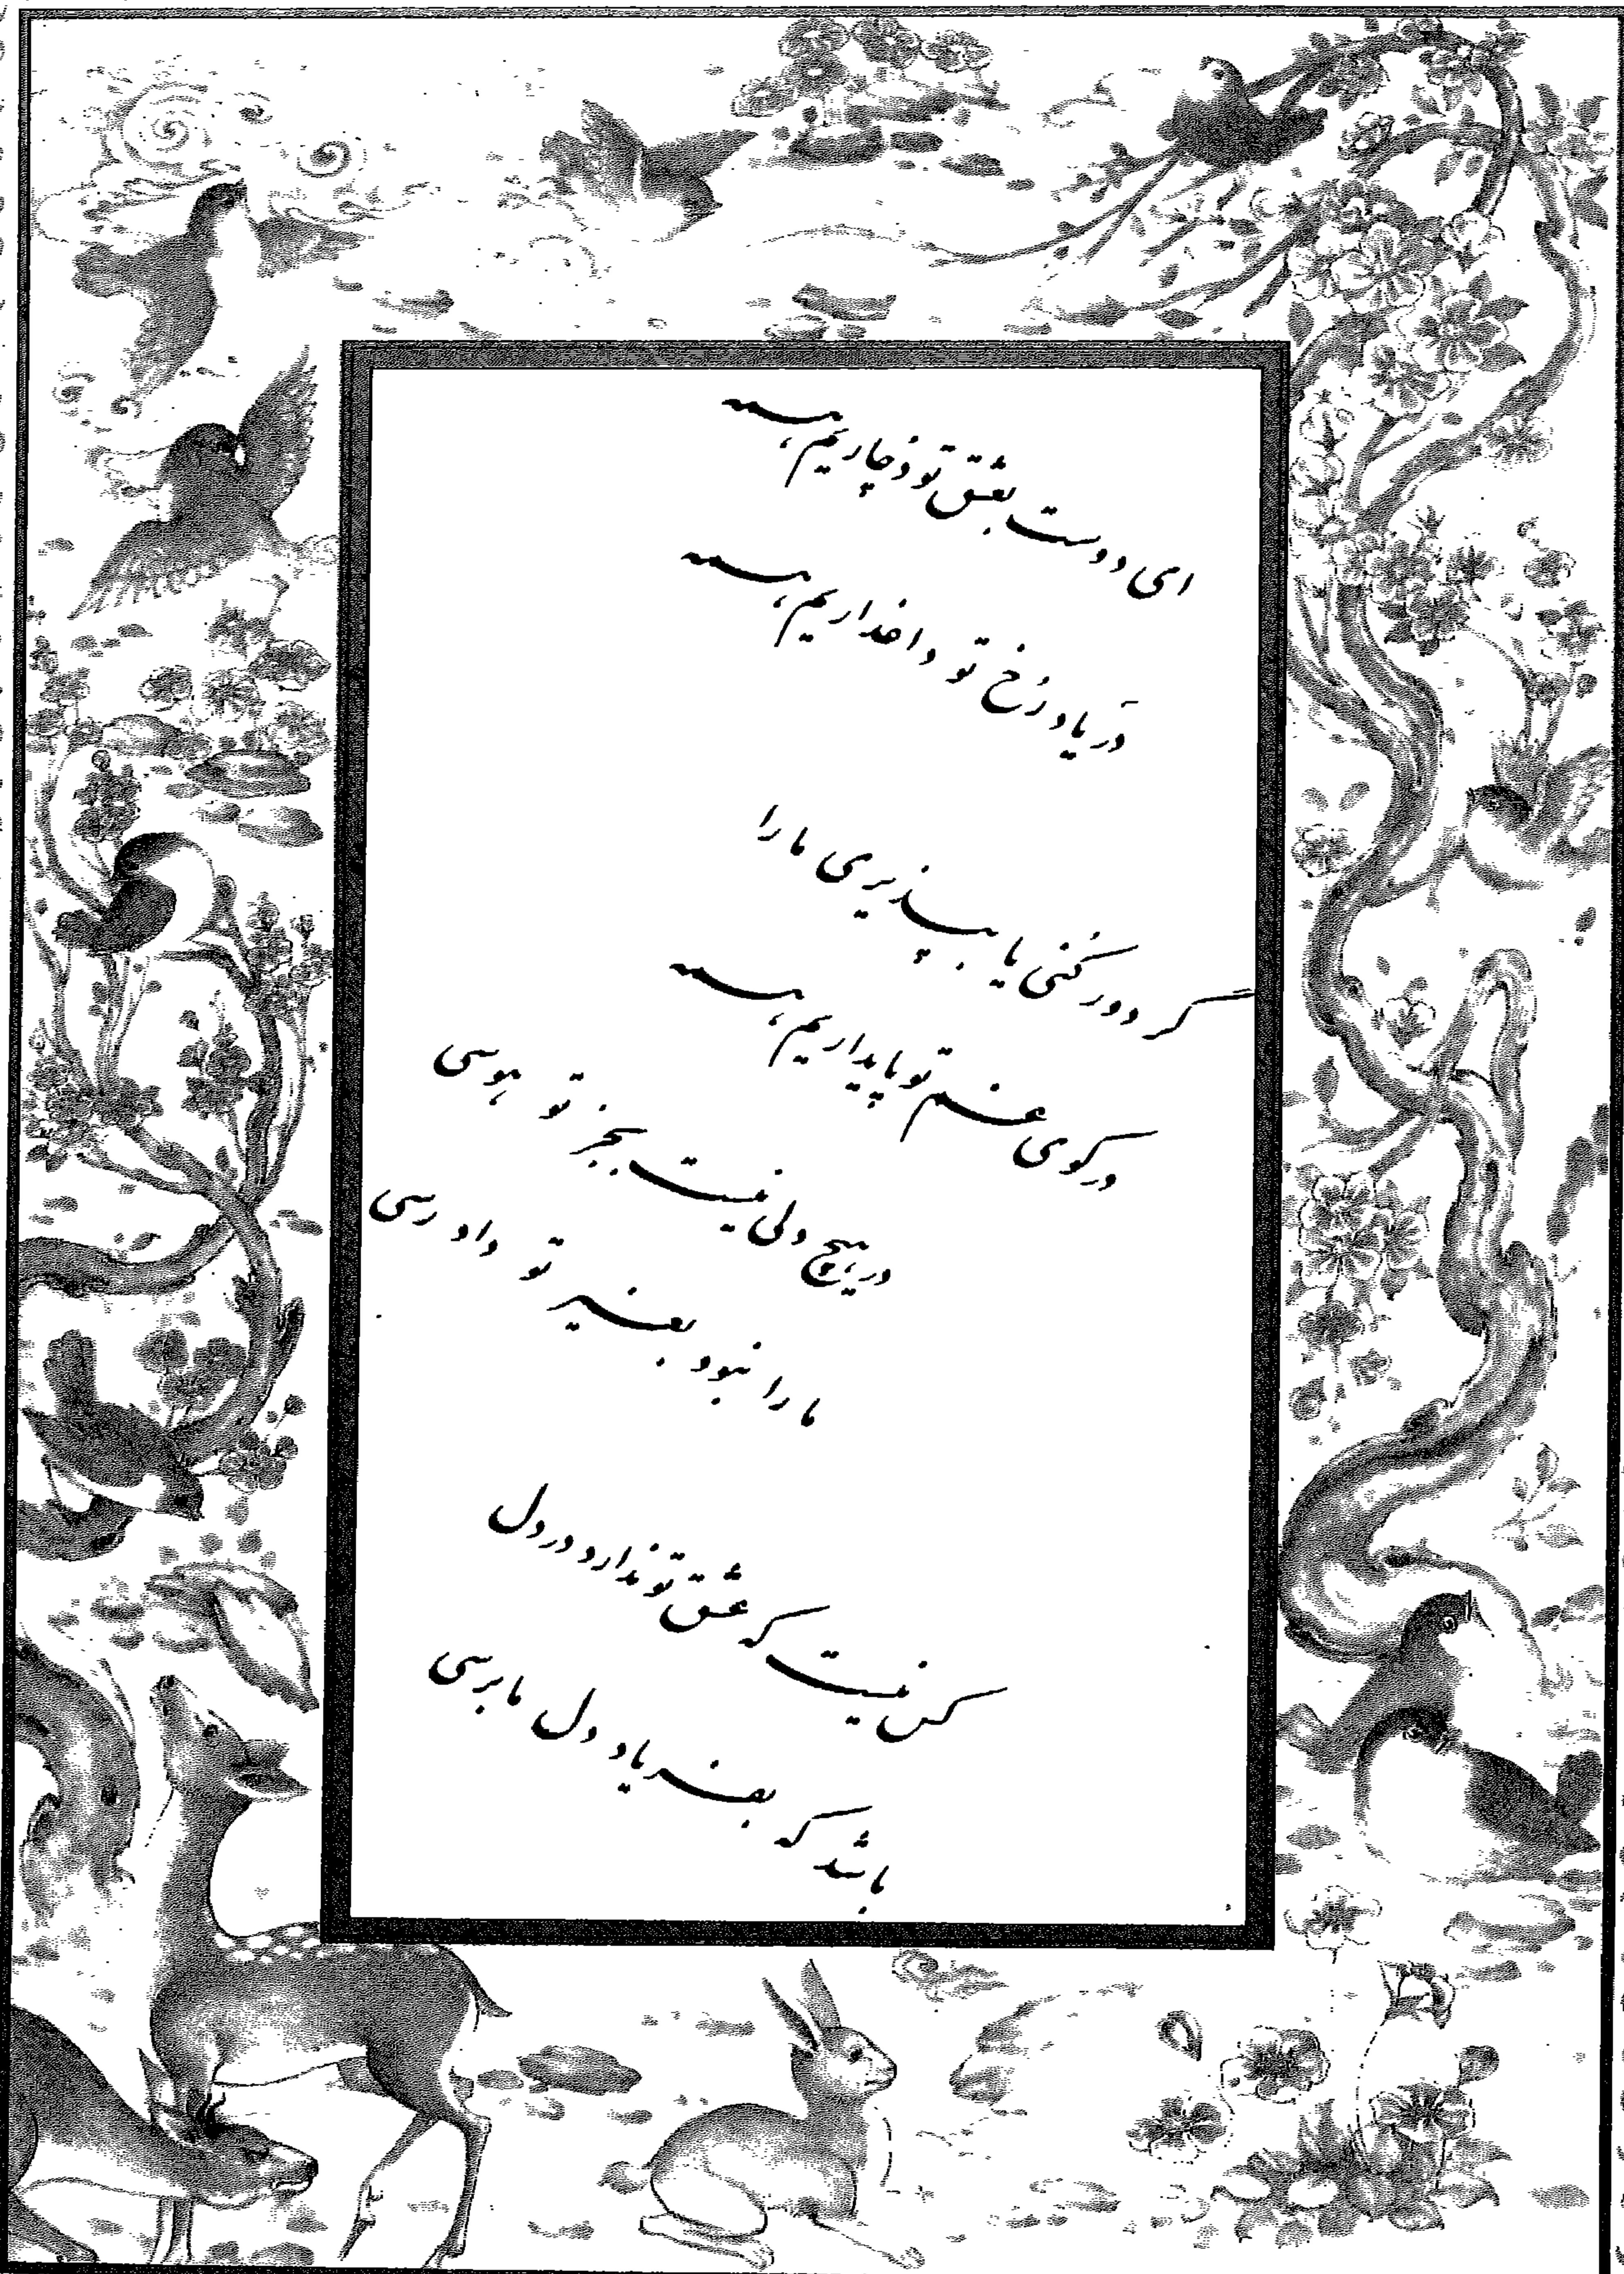 ای دوست بعشق تو دچاریم همه
در یاد رخ تو داغداریم همه
گر دور کنی یا بپذیری ما را
در کوی غم تو پایداریم همه
در هیچ دلی نیست بجز تو هوسی
ما را نبود بغیر تو دادرسی
کس نیست که عشق تو ندارد در دل
باشد که بفریاد دل ما برسی